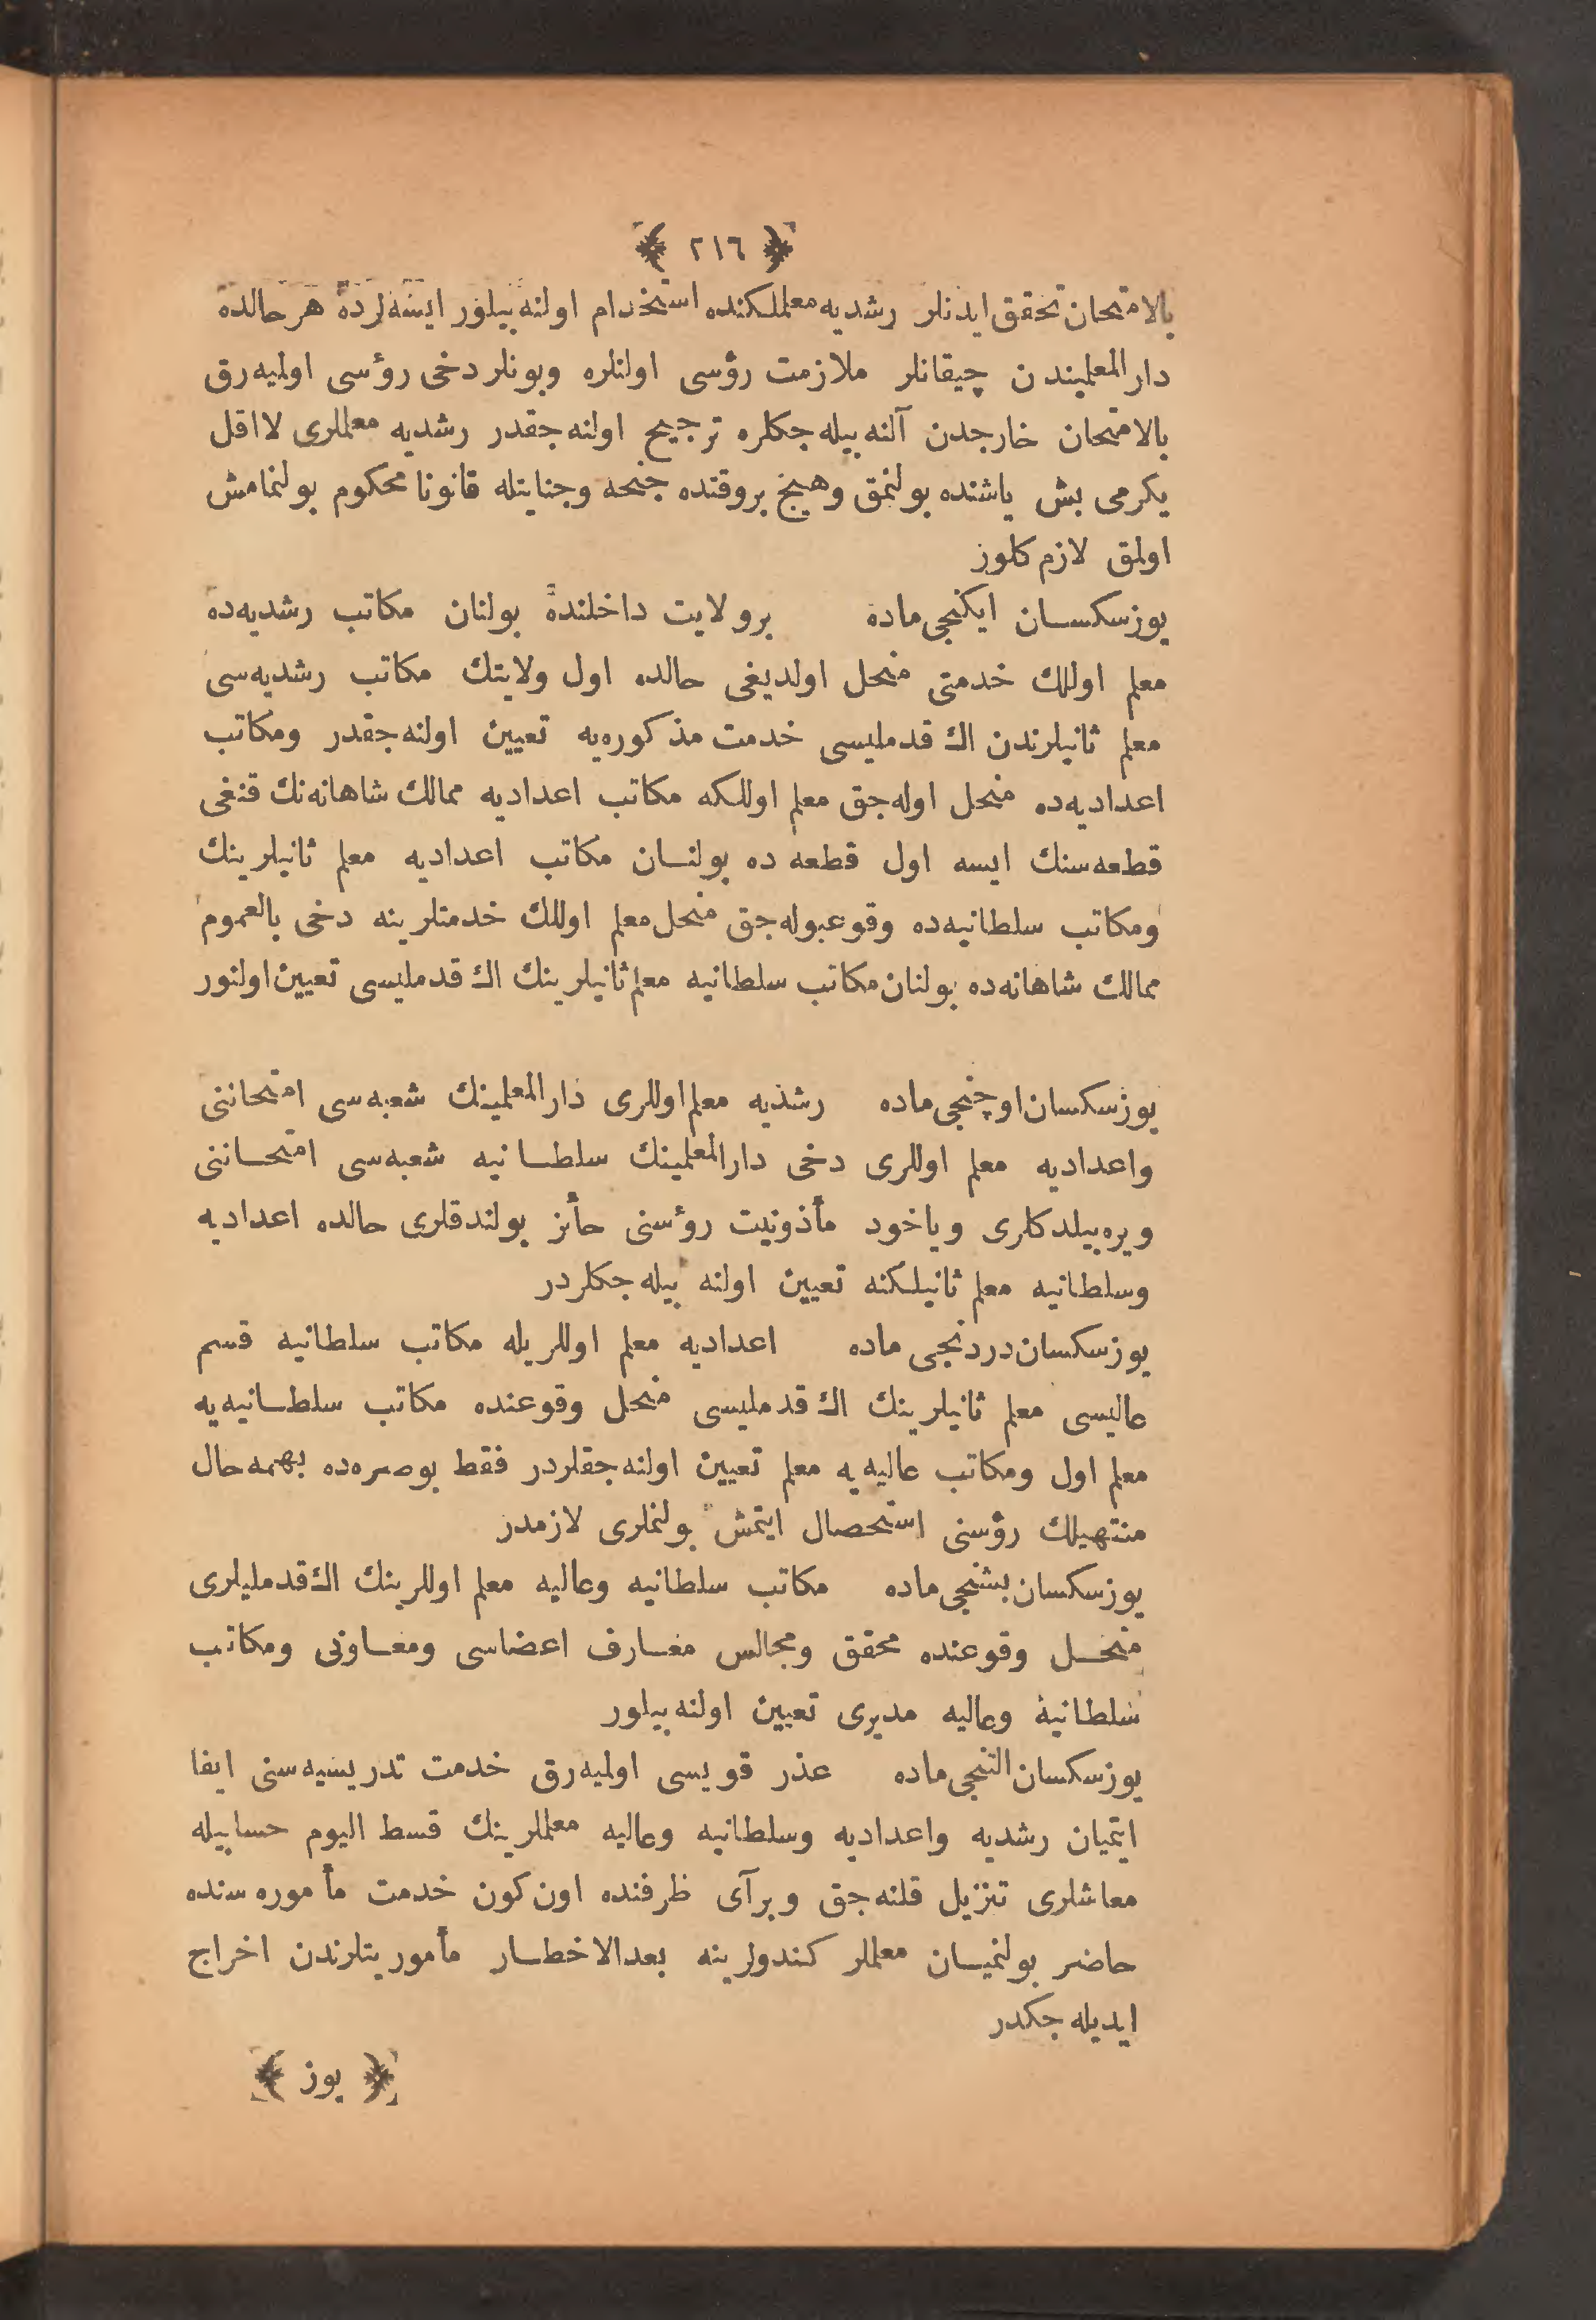 ﴿ ٢١٦ ﴾
بالامتحان تحقق ايدنلر رشديه معلملكنده استخدام اولنه بيلور ايسه لرده هر حالده
دار المعلميندن چيقانلر ملازمت رؤسى اولنلره وبونلر دخى رؤسى اوليه رق
بالامتحان خارجدن آلنه بيله جكلره ترجيح اولنه جقدر رشديه معلملرى لااقل
يكرمى بش ياشنده بولنمق وهيچ بروقتده جنحه وجنايتله قانونا محكوم بولنمامش
اولمق لازم كلور
يوزسكسان ايكنجى ماده برولايت داخلنده بولنان مكاتب رشديه ده
معلم اوللك خدمتى منحل اولديغى حالده اول ولايتك مكاتب رشديه سى
معلم ثانيلرندن اك قدمليسى خدمت مذكوره يه تعيين اولنه جقدر ومكاتب
اعداديه ده منحل اوله جق معلم اوللكه مكاتب اعداديه ممالك شاهانه نك قنغى
قطعه سنك ايسه اول قطعه ده بولنان مكاتب اعداديه معلم ثانيلرينك
ومكاتب سلطانيه ده وقوعبوله جق منحل معلم اوللك خدمتلرينه دخى بالعموم
ممالك شاهانه ده بولنان مكاتب سلطانيه معلم ثانيلرينك اك قدمليسى تعيين اولنور
يوزسكسان اوچنجى ماده رشديه معلم اوللرى دار المعلمينك شعبه سى امتحاننى
واعداديه معلم اوللرى دخى دار المعلمينك سلطانيه شعبه سى امتحاننى
ويره بيلدكلرى وياخود مأذونيت رؤسنى حأئز بولندقلرى حالده اعداديه
وسلطانيه معلم ثانيلكنه تعيين اولنه بيله جكلردر
يوزسكسان دردنجى ماده اعداديه معلم اوللريله مكاتب سلطانيه قسم
عاليسى معلم ثانيلرينك اك قدمليسى منحل وقوعنده مكاتب سلطانيه يه
معلم اول ومكاتب عاليه يه معلم تعيين اولنه جقلردر فقط بوصره ده بهمه حال
منتهيلك رؤسنى استحصال ايتمش بولنملرى لازمدر
يوزسكسان بشنجى ماده مكاتب سلطانيه وعاليه معلم اوللرينك اك قدمليلرى
منحل وقوعنده محقق ومجالس معارف اعضاسى ومعاونى ومكاتب
سلطانية وعاليه مديرى تعيين اولنه بيلور
يوزسكسان التنجى ماده عذر قويسى اوليه رق خدمت تدريسيه سنى ايفا
ايتميان رشديه واعداديه وسلطانيه وعاليه معلملرينك قسط اليوم حسابيله
معاشلرى تنزيل قلنه جق وبرآى ظرفنده اون كون خدمت مأموره سنده
حاضر بولنميان معلملر كندولرينه بعدالاخطار مأموريتلرندن اخراج
ايديله جكدر
﴿ يوز ﴾